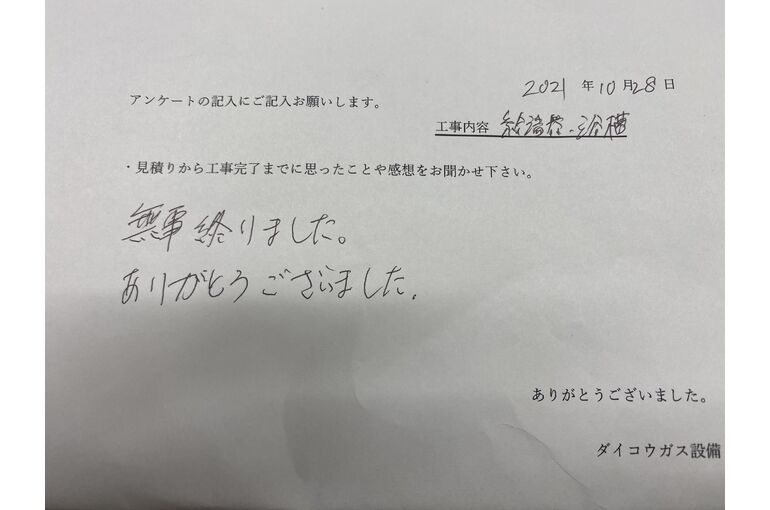 2021年10月28日
アンケートの記入にご記入お願いします。
工事内容 給湯器・浴槽
・見積りから工事完了までに思ったことや感想をお聞かせ下さい。
無事終りました。
ありがとうございました.
ありがとうございました。
ダイコウガス設備